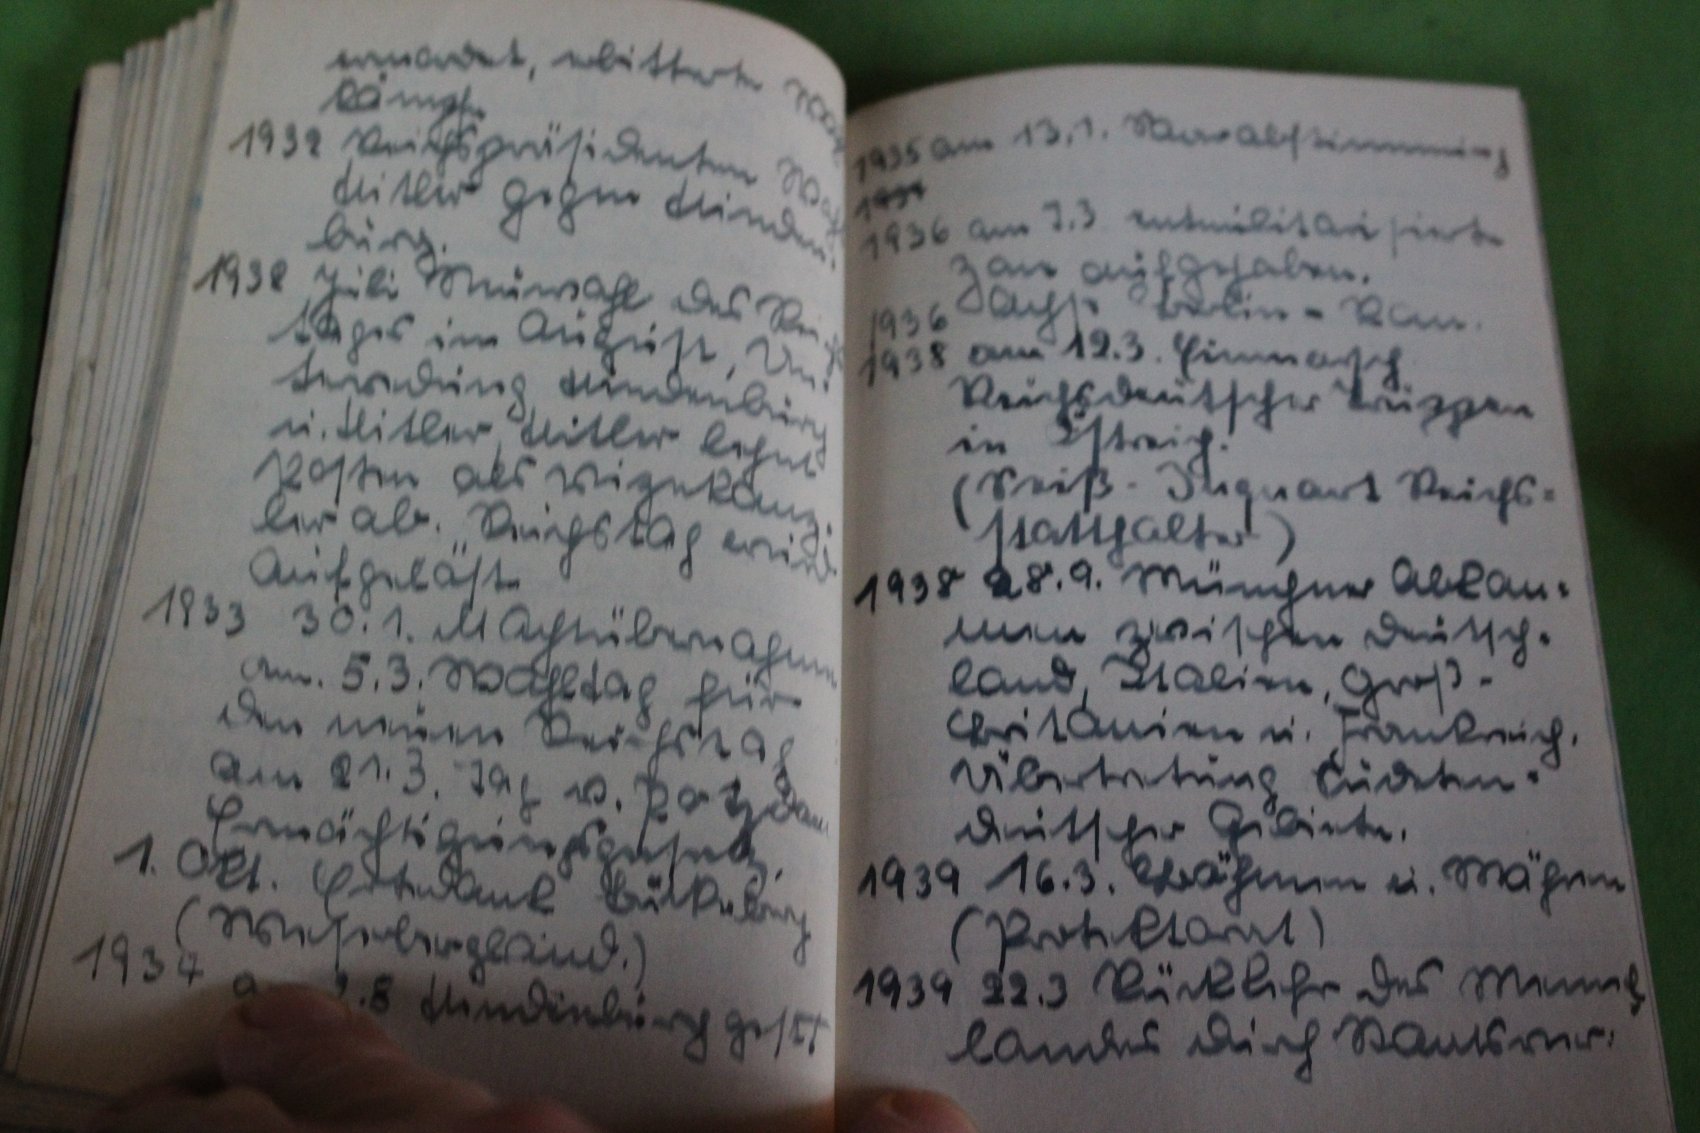 ermordet, erbitterte
kämpfe
1932 Reichspräsidenten Wahl
Hitler gegen Hinden-
burg.
1932 Juli Neuwahl des Reichs
tages im August, Un-
terredung Hindenburg
u. Hitler, Hitler lehnt
Posten als Vizekanz-
ler ab. Reichstag wird
aufgelöst.
1933 30.1. Machtübernahme
am. 5.3. Wahltag für
den neuen Reichstag
am 21.3. Tag v. Potzdam
Ermächtigungsgesetz.
1. Okt. Erntedank Bückeburg
(Weserbergland.)
1934 2.8 Hindenburg gest
1935 am 13.1. Saarabstimmung
1936 am 7.3 entmilitarisierte
Zone aufgehoben.
1936 Achse Berlin - Rom.
1938 am 12.3. Einmarsch
Reichsdeutscher Truppen
in Östreich.
(Seiß - Inquart Reichs-
statthalter)
1938 28.9. Münchner Abkom-
men zwischen Deutsch-
land, Italien, Groß-
Britanien u. Frankreich.
Übertretung Sudeten-
deutscher Gebiete.
1939 16.3. Böhmen u. Mähren
(Protektorat)
1939 22.3 Rückkehr des Memel
landes durch